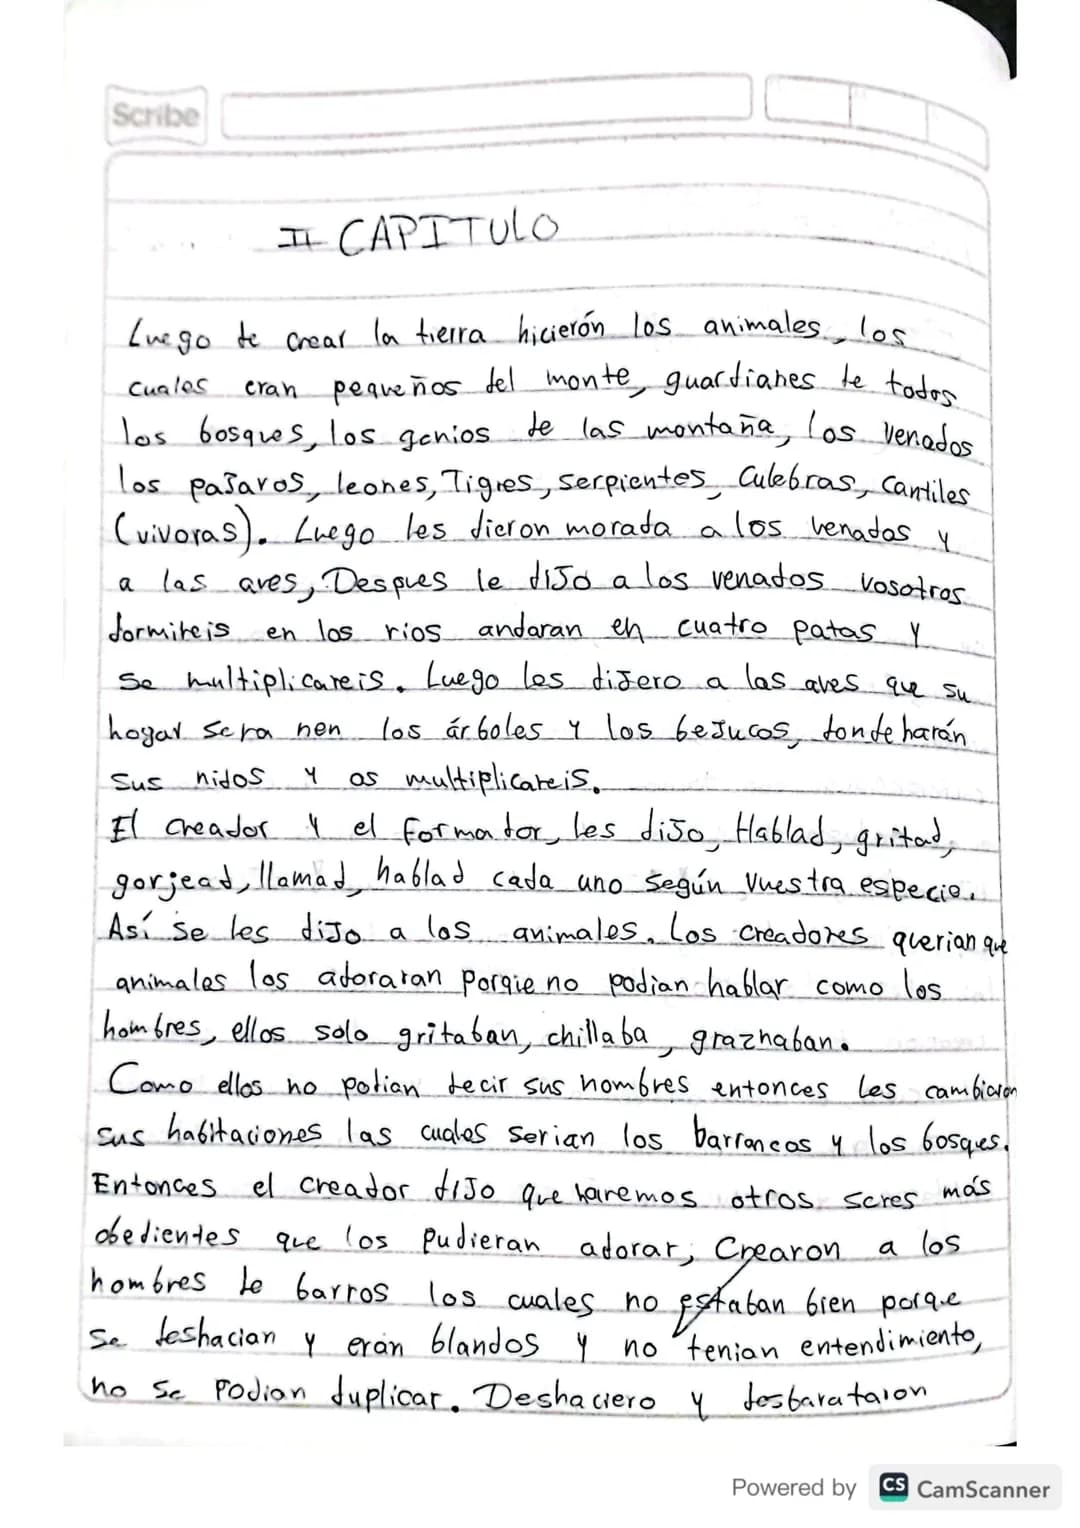 Scribe
II CAPITULO
Luego de crear la tierra hicierón los animales, los
cuales eran pequeños del monte, guardianes de todos
los bosques, los genios de las montaña, los venados
los paJaros, leones, Tigres, serpientes, Culebras, cantiles
(vivoras). Luego les dieron morada a los venados y
a las aves, Despues le diJo a los venados vosotros
dormireis en los rios andaran en cuatro patas y
se multiplicareis. Luego les diJero a las aves que su
hogar sera nen los árboles y los beJucos, donde harán
sus nidos y os multiplicareis.
El creador y el formador, les diJo, Hablad, gritad,
gorjead, llamad, hablad cada uno según vuestra especie.
Así se les diJo a los animales. Los creadores querian que
animales los adoraran porqie no podian hablar como los
hombres, ellos solo gritaban, chillaba, graznaban.
Como ellos no podian decir sus nombres entonces les cambiaron
sus habitaciones las cuales serian los barrancos y los bosques.
Entonces el creador diJo que haremos otros seres más
obedientes que los pudieran adorar, Crearon a los
hombres de barros los cuales no estaban bien porque
se deshacian y erán blandos y no tenian entendimiento,
no se podian duplicar. Deshaciero y desbarataron
Powered by CS CamScanner